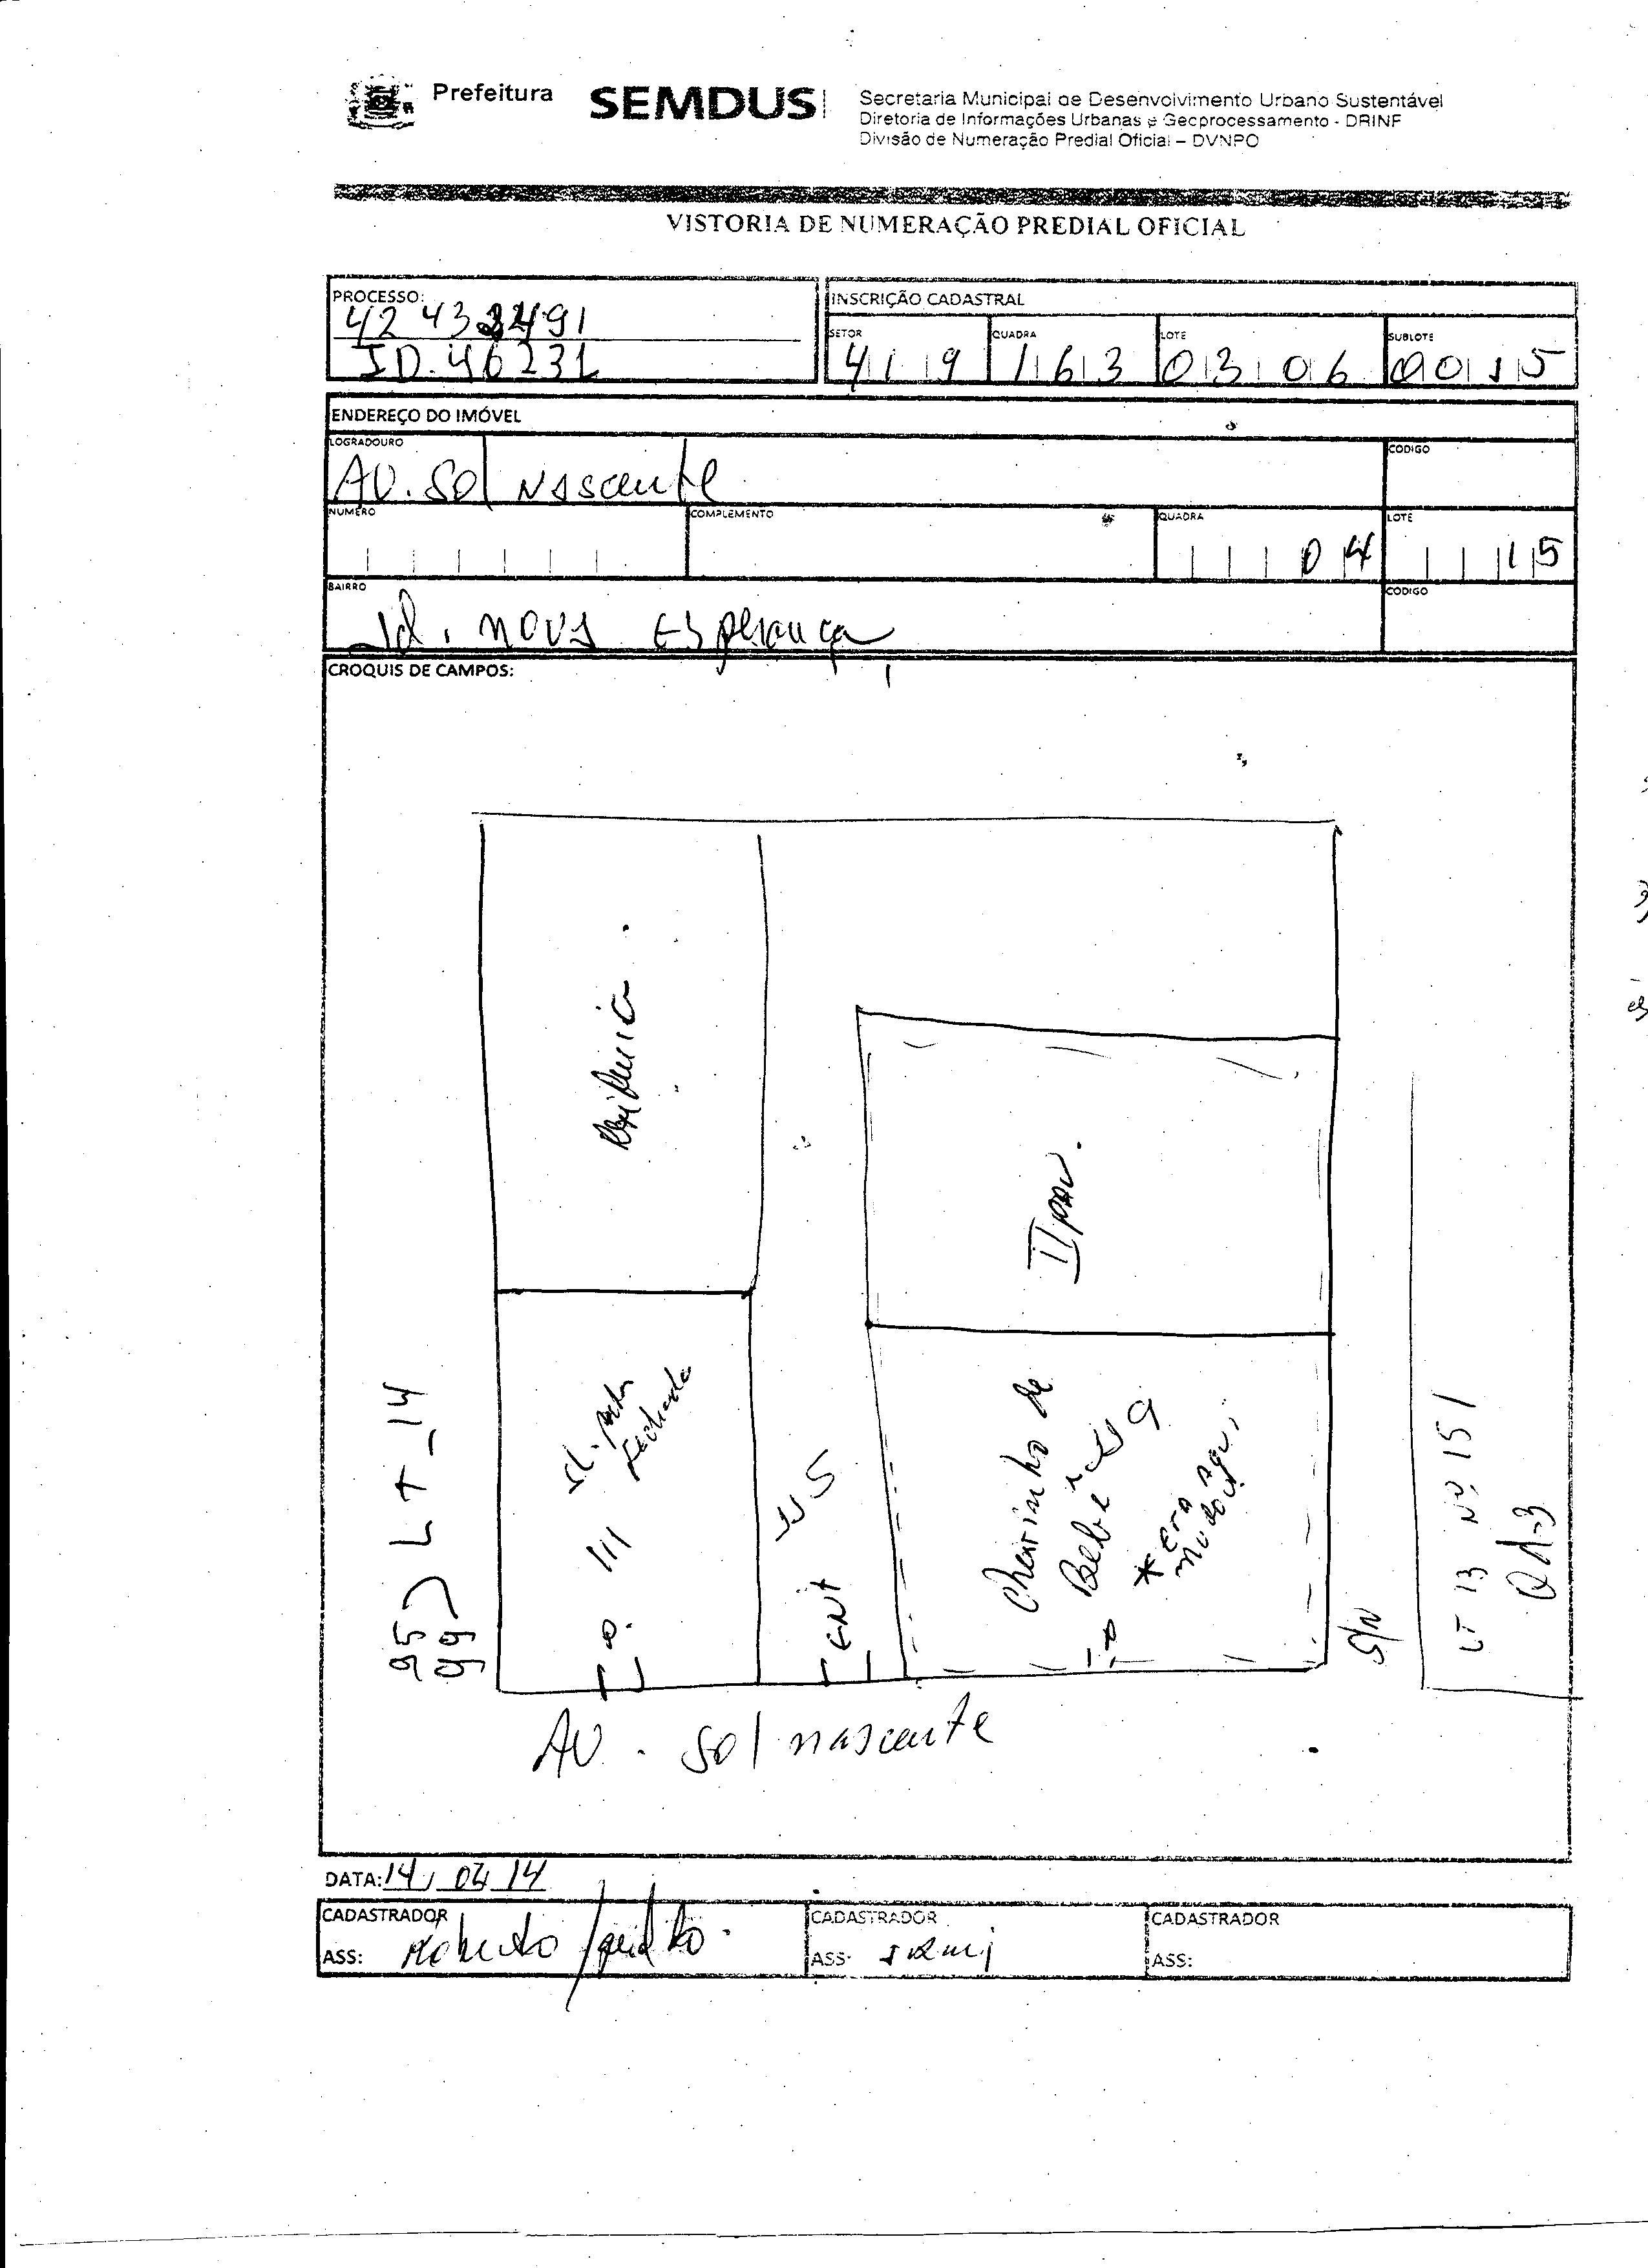 Prefeitura
SEMDUS
Secretaria Municipal de Desenvolvimento Urbano Sustentável
Diretoria de Informações Urbanas e Geoprocessamento - DRINF
Divisão de Numeração Predial Oficial – DVNPO
VISTORIA DE NUMERAÇÃO PREDIAL OFICIAL
PROCESSO:
ID. 46231
INSCRIÇÃO CADASTRAL
SETOR QUADRA LOTE SUBLOTE
419 163 0306 0015
ENDEREÇO DO IMÓVEL
LOGRADOURO CODIGO
AV. Sol Nascente
NUMERO COMPLEMENTO QUADRA LOTE
04 15
BAIRRO CODIGO
Jd. Nova Esperança
CROQUIS DE CAMPOS:
Residencia.
II pav.
Sl. porta
Fechada
111
115
Ent
Cheirinho de
Bebe
119
* era aqui,
mudou
95
99
LT-14
S/N
LT 13 Nº 151
Qd-3
AV. Sol nascente
DATA: 14/04/14
CADASTRADOR CADASTRADOR CADASTRADOR
ASS: Roberto ASS: ASS: